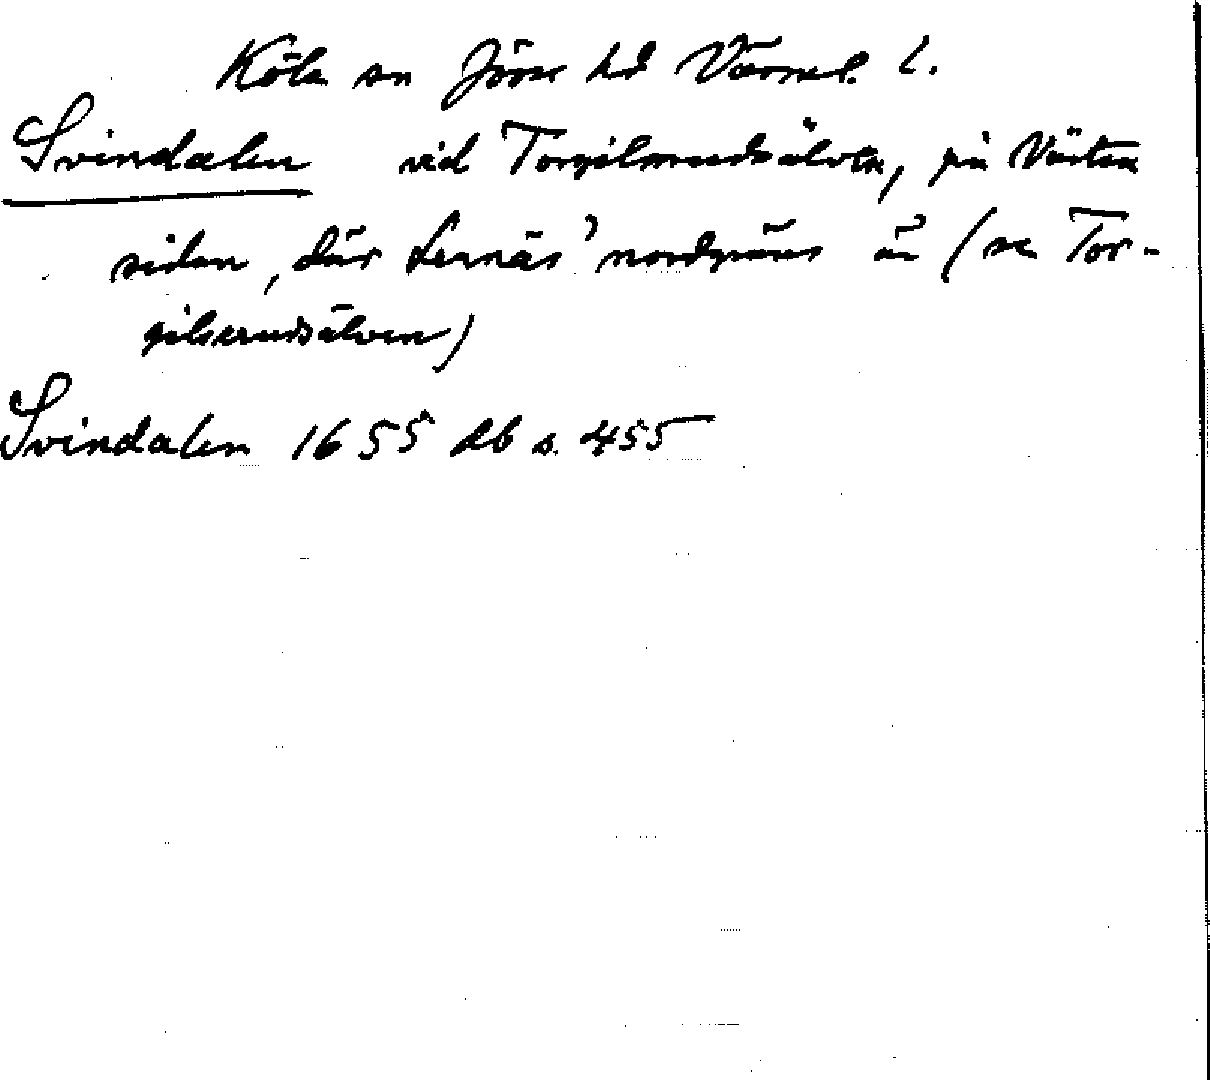 Köla sn Jösse hd Värml. l.
Svindalen vid Torgilsrudsälven, på Västra
sidan, där Lernäs' nordgräns är (se Tor-
gilserudsälven)
Svindalen 1655 db s. 455